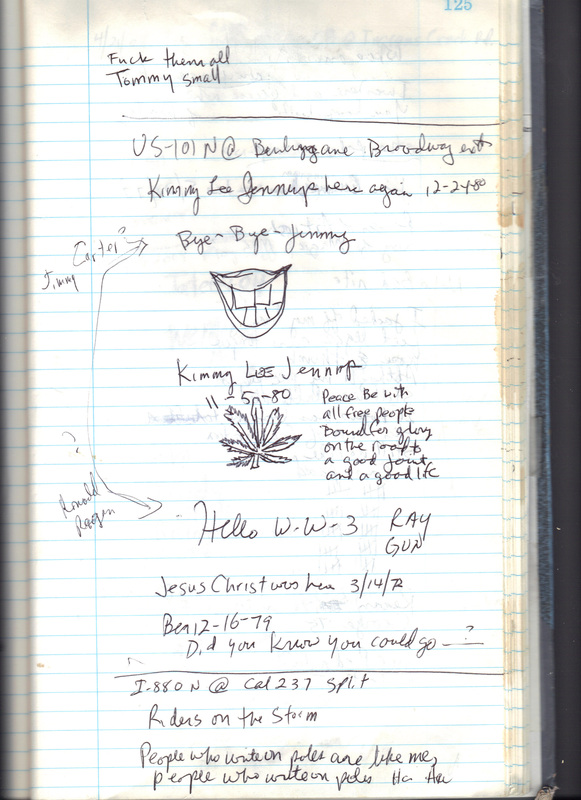 125
Fuck them all
Tommy Small
US-101 N @ Burlingame Broadway exit
Kimmy Lee Jennings here again 12-24-80
Bye-Bye-Jimmy
Carter?
Jimmy
Kimmy LEE Jennings
11-5-80
Peace Be with
all free people
Bound for glory
on the road to
a good joint
and a good life
?
Ronald
Reagen
Hello W-W-3 RAY
GUN
Jesus Christ was here 3/14/72
Ben 12-16-79
Did you know you could go - ?
I-880 N @ Cal 237 split
Riders on the Storm
People who write on poles are like me,
people who write on poles Ha